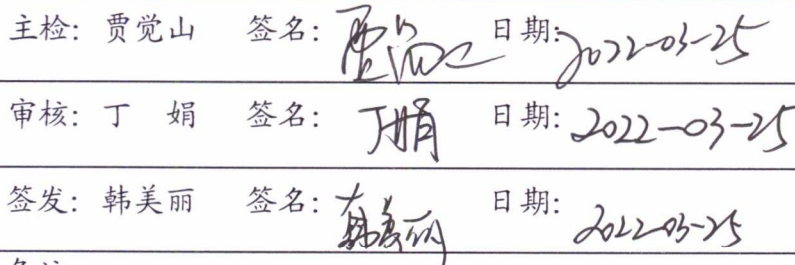 主检: 贾觉山 签名: 贾觉山 日期: 2022-03-25
审核: 丁 娟 签名: 丁娟 日期: 2022-03-25
签发: 韩美丽 签名: 韩美丽 日期: 2022-03-25